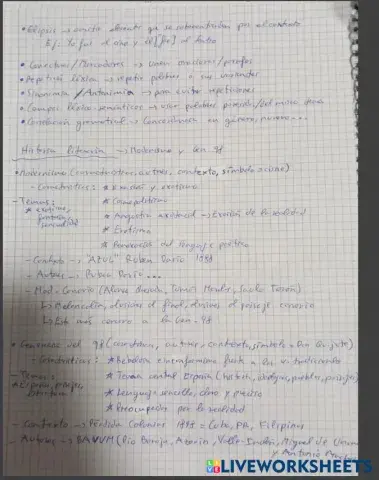 • Elipsis → omitir elemento que se sobreentiende por el contexto
Ej. Yo fui al cine y él [fue] al teatro
• Conectores / Marcadores → unen oraciones / párrafos
• Repetición léxica → repetir palabras o sus variantes
• Sinonimia / Antonimia → para evitar repeticiones
• Campos léxico-semánticos → usar palabras del mismo
• Correlación gramatical → Concordancia en género, número...
Historia literaria → Modernismo y Gen. 98
• Modernismo (características, autores, contexto, símbolo cisne)
- Características: * Evasión y exotismo
- Temas: * Cosmopolitismo
* exotismo, * Angustia existencial → Evasión de la realidad
* Erotismo
* Renovación del lenguaje poético
- Contexto → "AZUL" Rubén Darío 1888
- Autores → Rubén Darío...
- Mod. Canario (Alonso Quesada, Tomás Morales, Saulo Torón)
↳ Melancolía, alusiones al final, alusiones al paisaje canario
↳ más cercano a la Gen. 98
• Generación del 98 (características, autores, contexto, símbolo → Don Quijote)
- Características: * frente a lo
- Temas: * Tema central España (historia, ideología, pueblos, paisajes)
* España, paisajes, * Lenguaje sencillo, claro y preciso
* Preocupados por la realidad
- Contexto → Pérdida Colonias 1898 = Cuba, PR, Filipinas
- Autores → BAVUM (Pío Baroja, Azorín, Valle-Inclán, Miguel de Unamuno
y Antonio Machado
LIVEWORKSHEETS